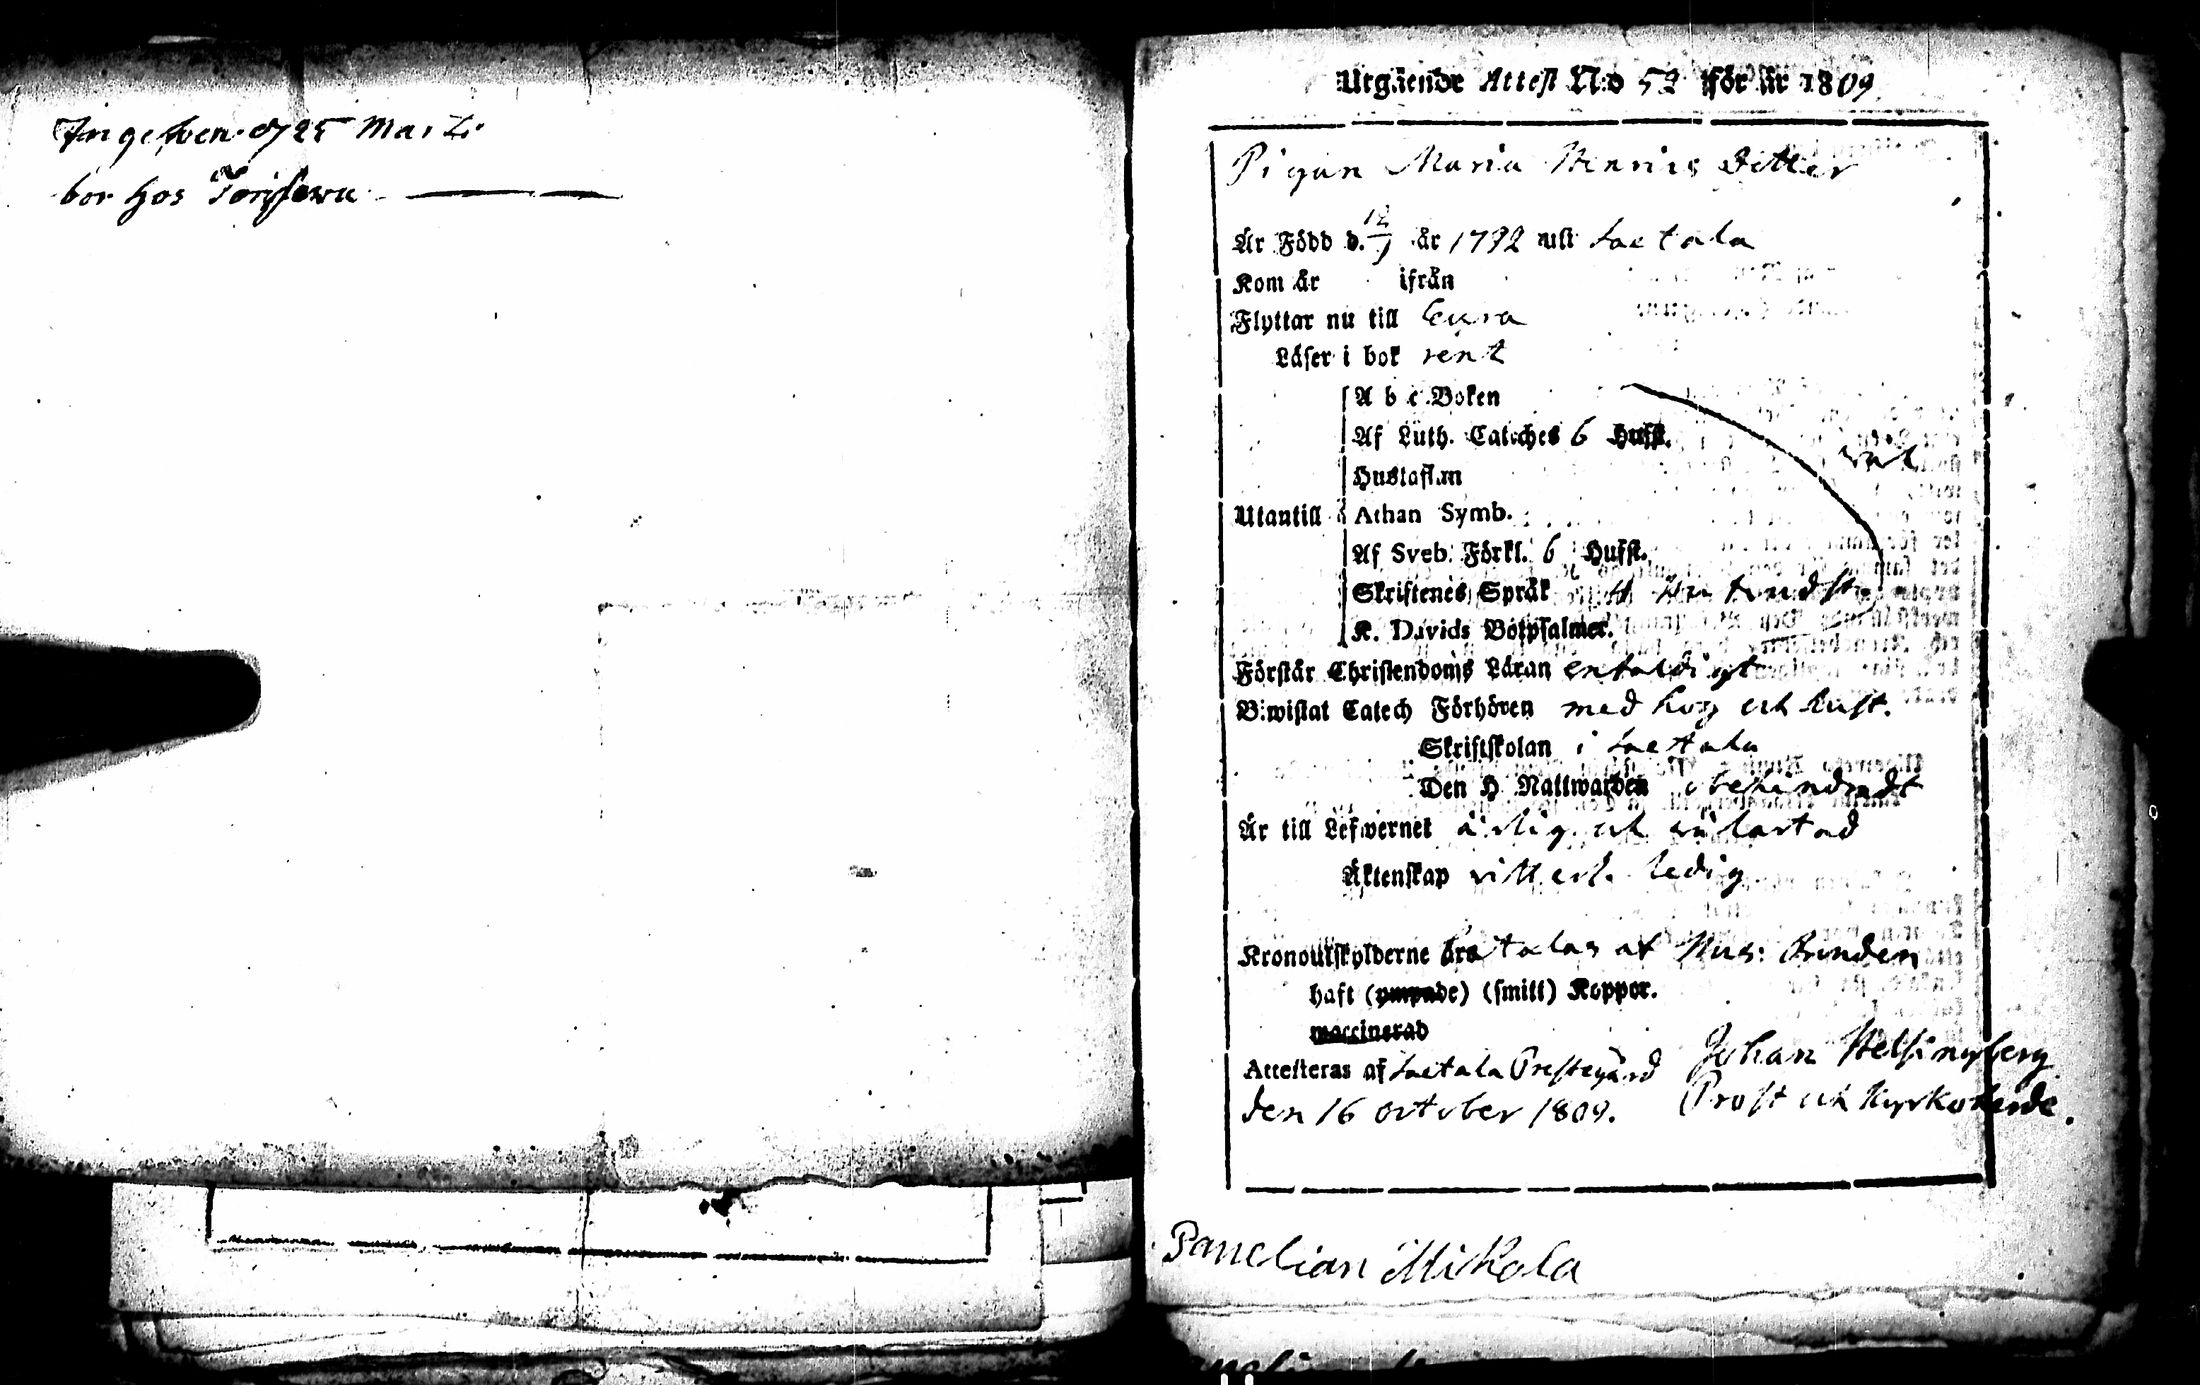 Ingefven d 25 Marti
bor hos
Utgående Attest N:o 52 för år 1809
Pigan Maria Henrics dotter
Är Född d. 12/9 år 1792 uti Laetala
Kom år ifrån
Flyttar nu till Eura
Läser i bok rent
A b c Boken
Af Luth. Cateches 6 Hufst.
wäl
Hustaflan
Utantill Athan Symb.
Af Sveb. Förkl. 6 Hufst.
Skriftenes Språk
K. Davids Botpsalmer.
Förstår Christendoms Läran enfaldigt
Biwistat Catech Förhören med hog och lust.
Skriftskolan i Laetala
Den H Nattwarden obehindradt
Är till Lefwernet ärlig och wälartad
Äktenskap ledig
Kronoutskylderne betalas af Hus: Bonden
haft (ympade) (smitt) Koppor.
waccinerad
Attesteras af Laetala Prestegård Johan Helsingberg
den 16 october 1809. Prost och Kyrkoherde.
Panelian Mikola